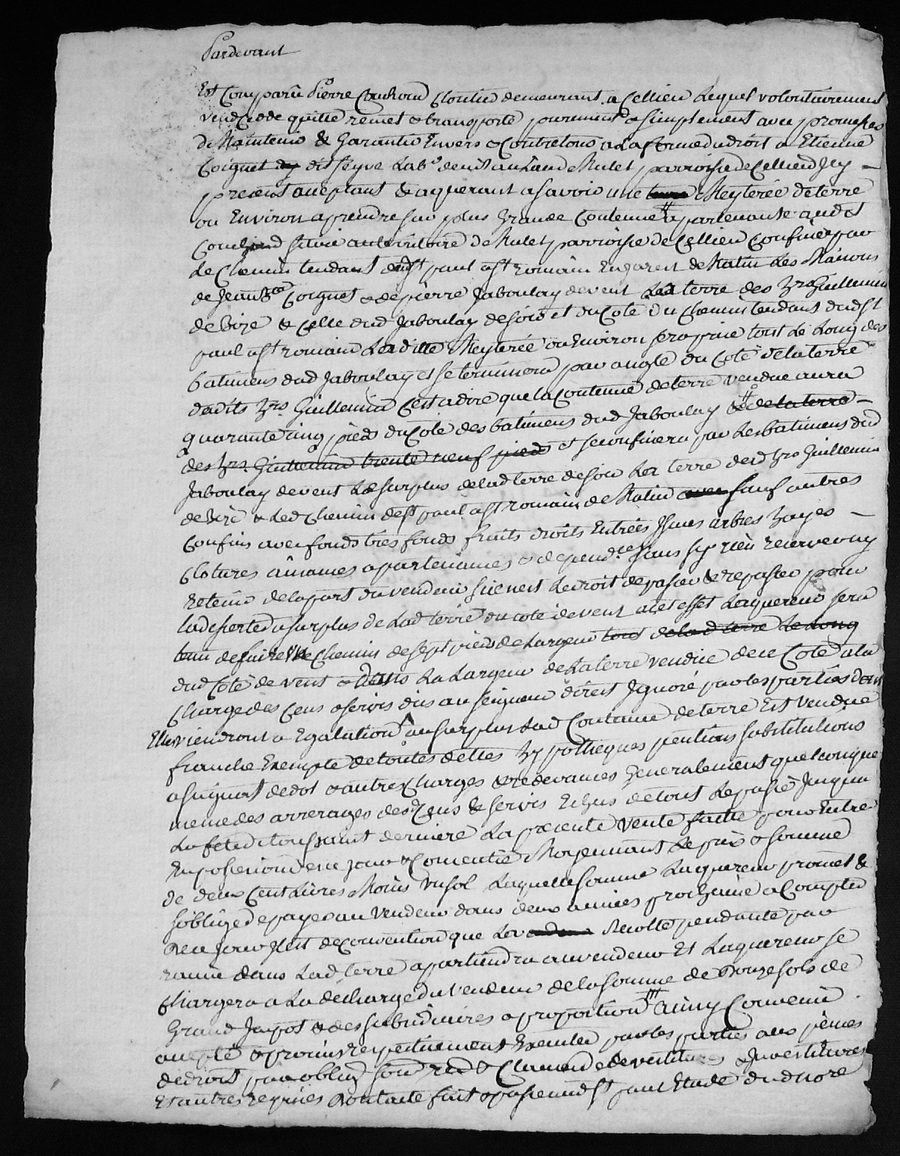 Pardevant
Est Comparu Pierre Couhoud Cloutier demeurant a Cellieu Lequel volontairement
vend cede quitte remet & transporte purement & simplement avec promesses
de Maintenir & Garantir Envers & Contre tous a la forme du droit a Etienne
Coignet dit Seyve Lab.r demt au lieu de Mulet parroisse de Cellieu Icy
present acceptant & aquerant a savoir une Meyterée de terre
ou Environ a prendre sur plus Grande Contenue apartenante audt
Couhoud située au territoire de Mulet parroisse de Cellieu Confinée par
Le Chemin tendant dudt St paul a St romain En Jarest de Matin Les Maisons
de Jean Bte Coignet & de pierre Jaboulay de vent La terre des hrs Guillemin
de bize & Celle dud Jaboulay de soir et du Coté du Chemin tendant dud St
paul a St romain Ladite Meyterée ou Environ sera prise tout Le Long des
batimens dud Jaboulay et se terminera par angle du Coté de la terre
desdits hrs Guillemin C'est a dire que la Contenue de terre vendue aura
quarante cinq pieds du Coté des batimens dud Jaboulay & de la terre
des hrs Guillemin trente neuf pieds et se confinera par Les batimens dud
Jaboulay de vent Le surplus de lad terre de soir La terre desd hrs Guillemin
de bize & Led Chemin de St paul a St romain de Matin sauf autres
Confins avec fonds tres fonds fruits droits Entrées Issues arbres hayes
Clotures aisances apartenances & dependces sans sy rien reserver ny
retenir de la part du vendeur si ce n'est Le droit de passer & repasser pour
la deserte du surplus de Lad terre du coté de vent a cet effet Laquereur sera
tenu de faire un Chemin de sept pieds de Largeur tout de lad terre Le Long
dud Coté de vent & dans La Largeur de La terre vendue de ce Coté a la
Charge des Cens & servis dus au seigneur direct Ignoré par les parties dont
Elles viendront a Egalation au surplus Lad Contenue de terre Est vendue
franche Exempte de toutes dettes hypotheques pentions substitutions
assignats de dot & autres Charges & redevances Generalement quelconques
meme des arrerages des Cens & servis Echus de tout Le passé Jusqu'a
La fete de toussaint derniere La presente vente faite pour Entrer
En possession de ce jour & Consentie Moyennant Le prix & somme
de deux Cent Livres Moins un sol Laquelle somme Laquereur promet &
s'oblige de payer au Vendeur dans deux années prochaine a Compter
de ce Jour Il est de convention que La Recolte pendante par
racine dans Lad terre apartiendra au vendeur Et Laquereur se
Chargera a La decharge du vendeur de la somme de Douze sols de
Grand Impot & des subsidiaires a proportion ainsy Convenu
accepté & promis respectivement Executer par les parties aux peines
de droit par obligon soumon renon & Clause de devestiture & Investiture
Et autres requises dont acte fait & passé aud St paul Etude dud nore